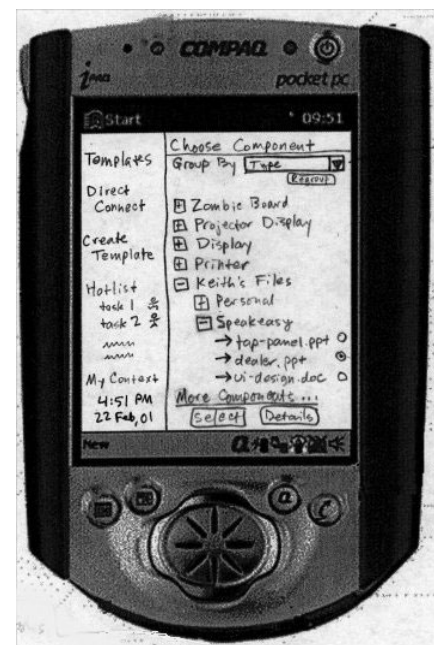 COMPAQ
iPAQ
pocket pc
Start
09:51
Templates
Direct
Connect
Create
Template
Hotlist
task 1
task 2
My Context
4:51 PM
22 Feb, 01
Choose Component
Group By Type
Regroup
+ Zombie Board
+ Projector Display
+ Display
+ Printer
- Keith's Files
+ Personal
- Speakeasy
→ top-panel.ppt
→ dealer.ppt
→ ui-design.doc
More Components ...
Select Details
New